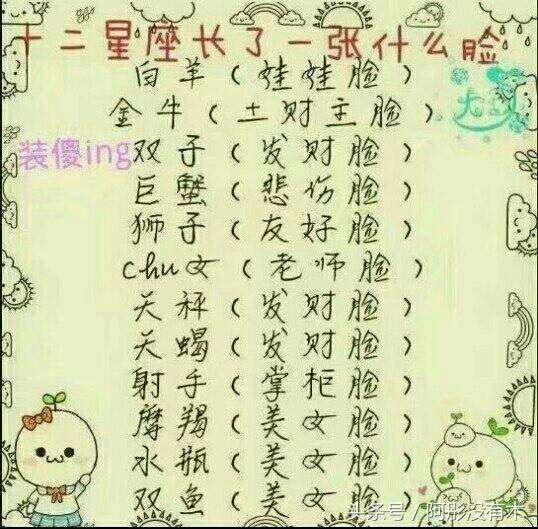 十二星座长了一张什么脸
白羊(娃娃脸)
金牛(土财主脸)
装傻ing
双子(发财脸)
巨蟹(悲伤脸)
狮子(友好脸)
chu女(老师脸)
天秤(发财脸)
天蝎(发财脸)
射手(掌柜脸)
摩羯(美女脸)
水瓶(美女脸)
双鱼(美女脸)
头条号/阿彤没有木